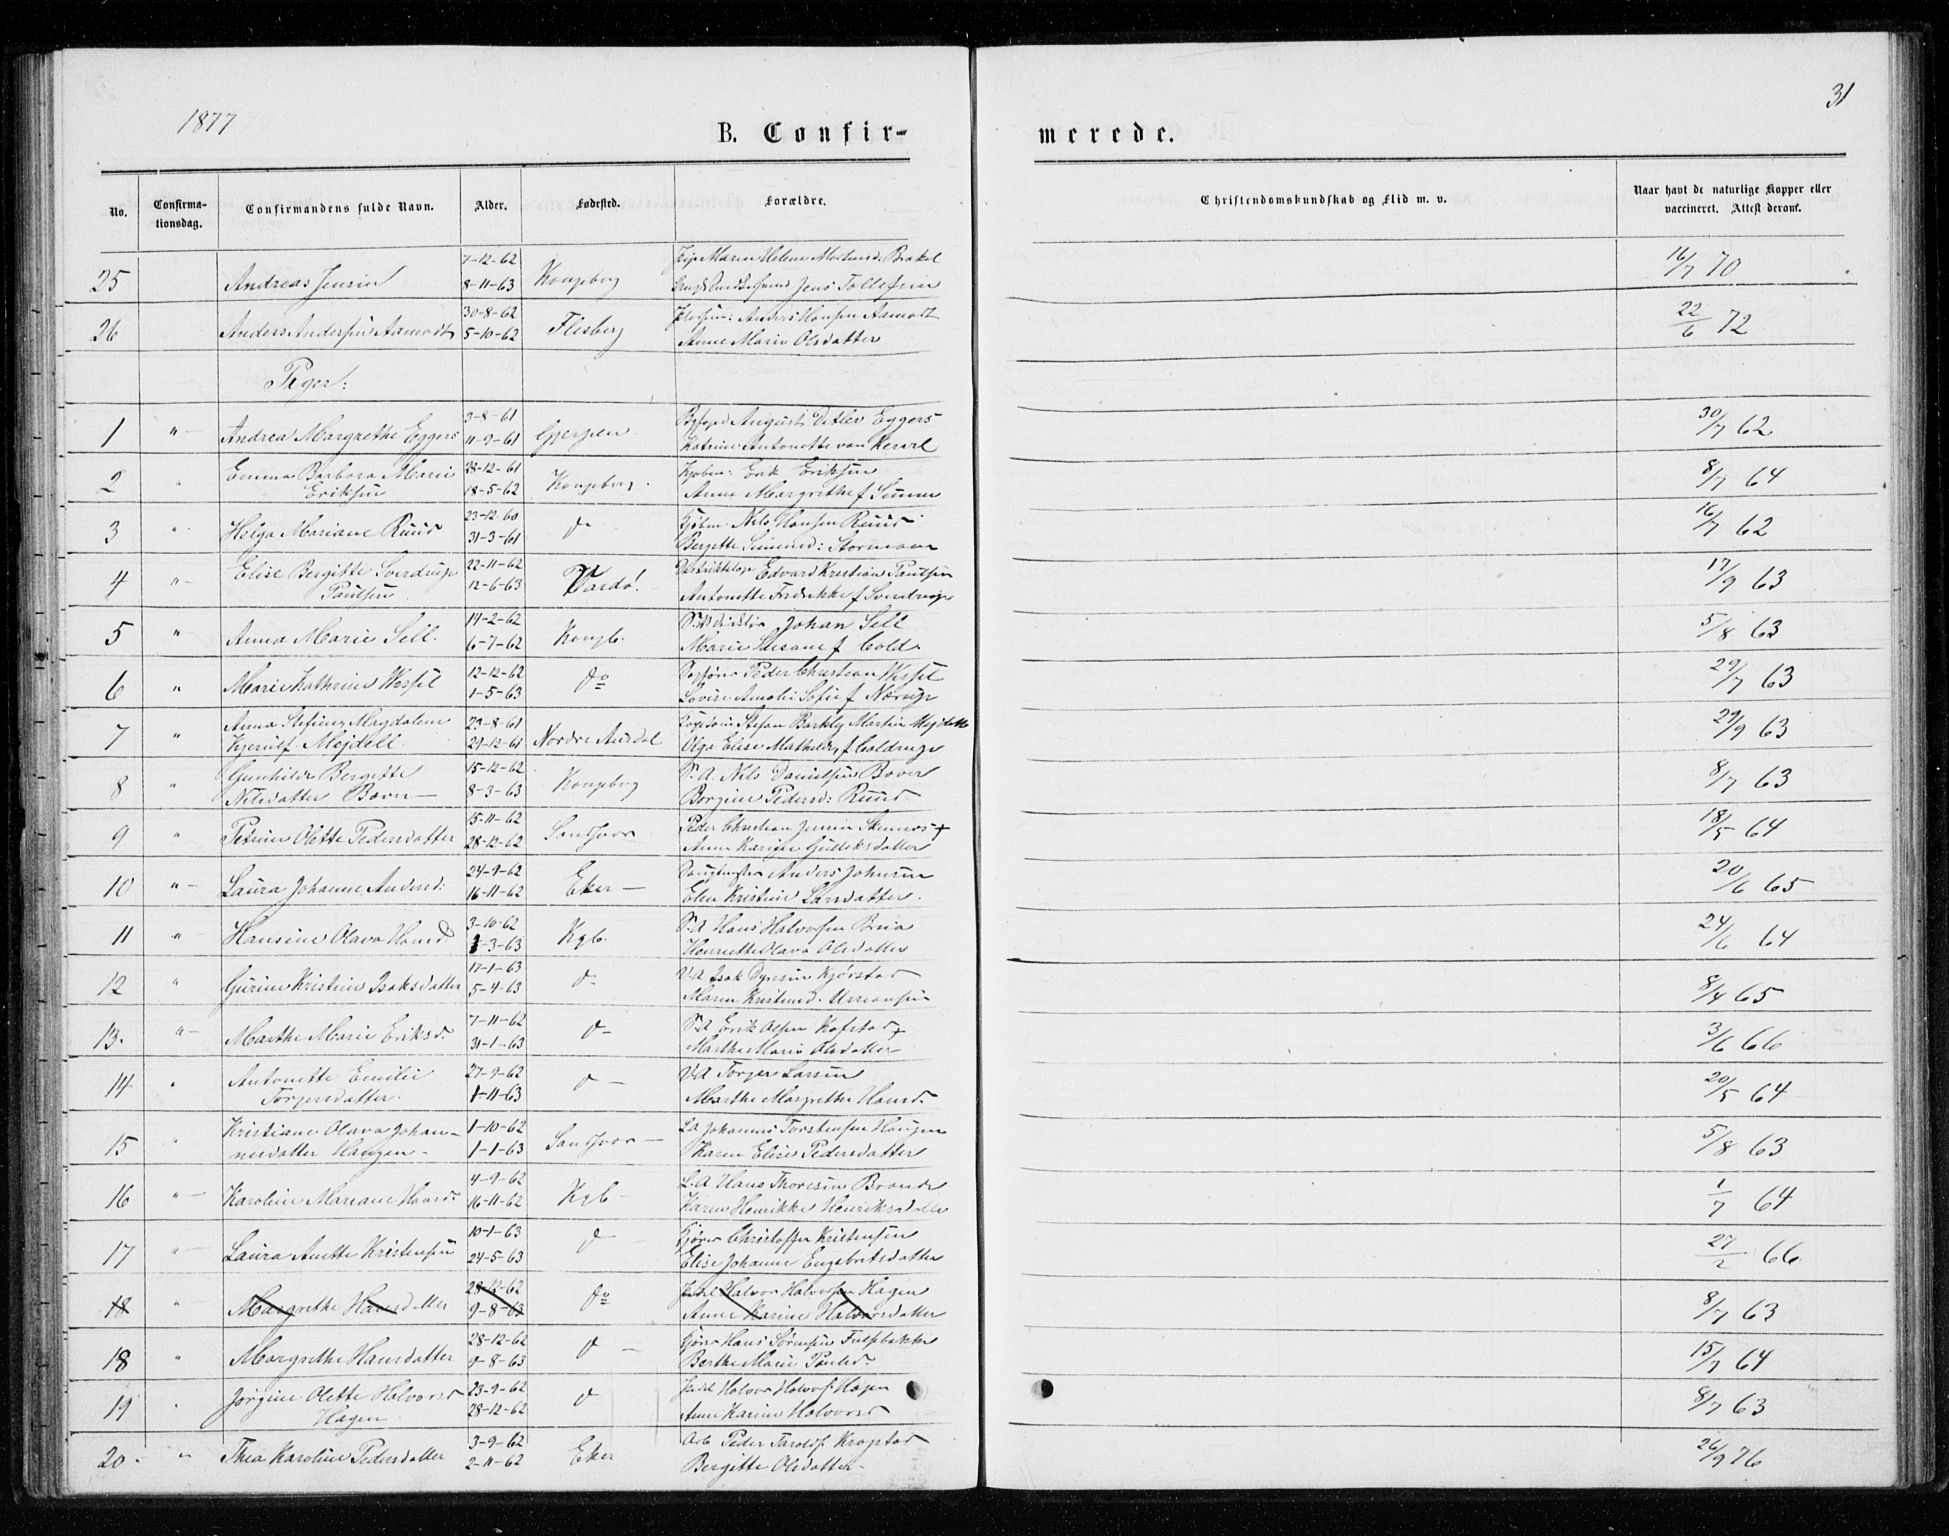 1877
31
B. Confir-
merede.
No.
Confirma-
tionsdag.
Confirmandens fulde Navn.
Alder.
Fødested.
Forældre.
Christendomskundskab og Flid m. v.
Naar havt de naturlige Kopper eller
vaccineret. Attest derom.
7-12-62
25 Andreas Jensen 8-11-63 Kongsberg Jens Tollefsen 16/7 70
30-8-62 Anders Hansen Aamodt
26 Anders Andersen Aamodt 5-10-62 Flesberg Anne Marie Olsdatter 22/6 72
Piger:
3-8-61 August Detlev Eggers
1 " Andrea Margrethe Eggers 11-9-61 Gjerpen Katrine Antonette von 30/7 62
Emma Barbara Marie 28-12-61 Erik Eriksen
2 " Eriksen 18-5-62 Kongsberg Anna Margrethe f 8/7 64
23-12-60 Nils Hansen Ruud
3 " Helga Mariane Ruud 31-3-61 do Bergitte 16/7 62
Elise Bergitte Sverdrup 22-11-62 Edvard Kristian Paulsen
4 " Paulsen 12-6-63 Vardö Antonette Fredrikke f Sverdrup 17/9 63
14-2-62 Johan Sell
5 " Anna Marie Sell 6-7-62 Kongb. Marie Susane f Cold 5/8 63
12-12-62 Peder Christian Wessel
6 " Marie Kathrine Wessel 1-5-63 do Lovise Amalie Sofie f Nærup 29/7 63
Anna Stefine Magdalene 22-8-61 Stefan Barkley Martin Mejdell
7 " Kjerulf Mejdell 29-12-61 Nordre Aurdal Olga Elise Mathilde f Coldrup 29/9 63
Gunhilde Bergitte 15-12-62 S. A. Nils Danielsen Bover
8 " Nilsdatter Bover 8-3-63 Kongsberg Bergine Pedersd: Ruud 8/7 63
15-11-62 Peder Christian Jensen
9 " Petrine Olette Pedersdatter 28-12-62 Sandsvær Anne Karine Gulliksdatter 18/5 64
24-9-62 Anders Johnsen
10 " Laura Johanne Andersd: 16-11-62 Eker Elen Kristine Larsdatter 20/6 65
3-10-62 S. A Hans Halvorsen
11 " Hansine Olava Hansd 1-3-63 Kgb. Henriette Olava Olsdatter 24/6 64
17-1-63 V A Isak Kjørstad
12 " Gurine Kristine Isaksdatter 5-4-63 do Maren 8/4 65
7-11-62 S. A Erik Olsen
13. " Marthe Marie Eriksd. 31-1-63 do Marthe Marie Olsdatter 3/6 66
Antonette Emilie 27-9-62 V A Torger Larsen
14 " Torgersdatter 1-11-63 do Marthe Margrethe Hansd. 20/5 64
Kristiane Olava Johan- 1-10-62 S. A Johannes Torstensen Haugen
15 " nesdatter Haugen 1-1-63 Sandsvær Karen Elise Pedersdatter 5/8 63
4-9-62 S. A Hans Thoresen
16 " Karoline Mariane Hansd. 16-11-62 Kgb Karen Henrikke Henriksdatter 1/7 64
10-1-63 Christoffer Kristensen
17 " Laura Anette Kristensen 24-5-63 do Elise Johanne Engebretsdatter 27/2 66
28-12-62 Halvor Halvorsen Hagen
18 " Margrethe Hansdatter 9-8-63 do Anne Karine Halvorsdatter 8/7 63
28-12-62 Hans Sørensen
18 " Margrethe Hansdatter 9-8-63 do Berthe Marie Paulsd. 15/7 64
Jørgine Olette Halvorsd 23-9-62 Halvor Halvors: Hagen
19 " Hagen 28-12-62 do Anne Karine Halvorsd 8/7 63
3-9-62 Arb Peder
20 " Thea Karoline Pedersdatter 2-11-62 Eker Bergitte Olsdatter 26/9 76